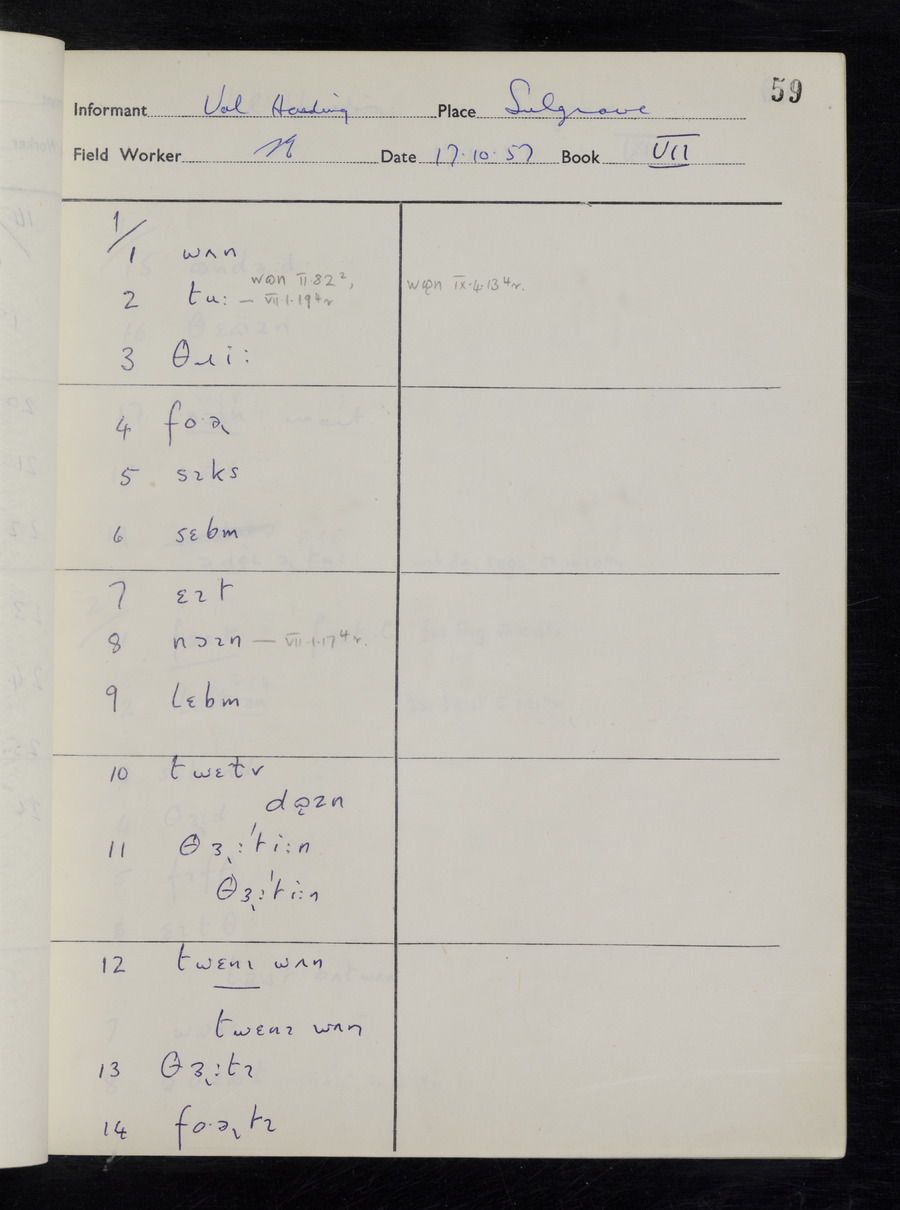 59
Informant Val Harding Place Sulgrave
Field Worker Date 17.10.57 Book VII
1/
1 wʌn
wɒn II.82²,
wɒ̨n IX.4.13⁴r.
2 tu: — VII.1.19⁴r
3 θɹi:
4 foɚ
5 sɪks
6 sɛbm
7 ɛɪt
8 nɔɪn — VII.1.17⁴r.
9 lɛbm
10 twɛɫv
dɒ̨zn
11 θɜ˞:ˈti:n
θɜ˞:ˈti:n
12 twɛnɪ wʌn
twɛnɪ wʌn
13 θɜ˞:tɪ
14 fo·ɚtɪ